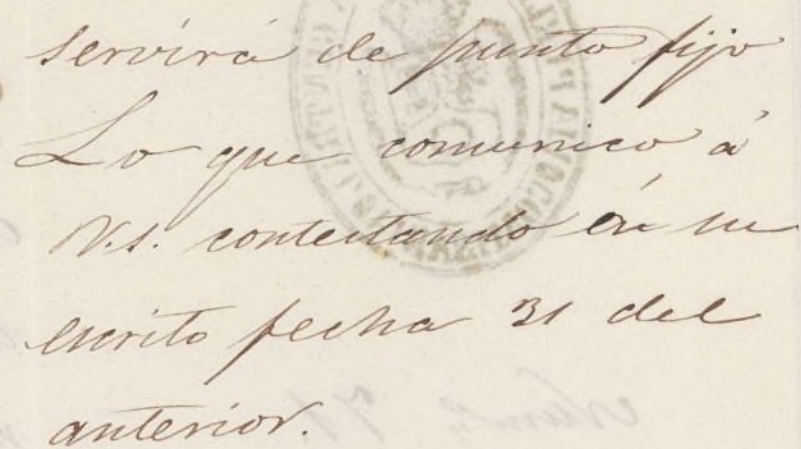 servirá de punto fijo
Lo que comunico á
V.S. contestando á su
escrito fecha 31 del
anterior.